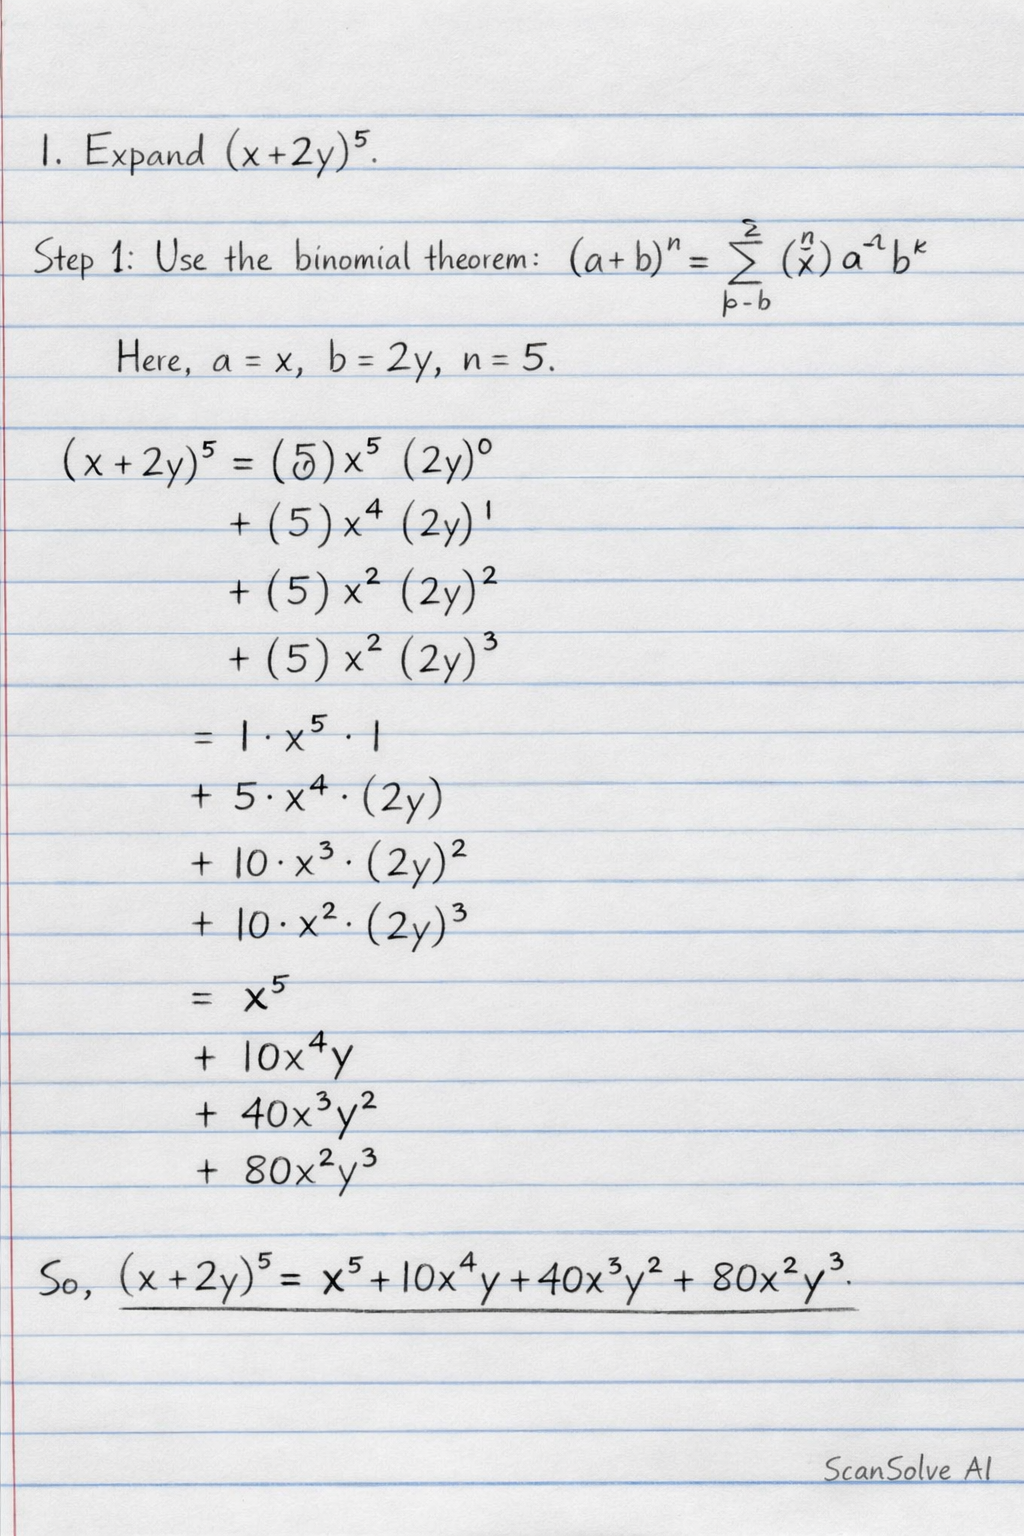 1. Expand (x+2y)⁵.
Step 1: Use the binomial theorem: (a+b)ⁿ = ∑ (n/x) a⁻¹ bᵏ
2
p-b
Here, a = x, b = 2y, n = 5.
(x+2y)⁵ = (5)x⁵ (2y)⁰
+ (5)x⁴ (2y)¹
+ (5)x² (2y)²
+ (5)x² (2y)³
= 1·x⁵·1
+ 5·x⁴·(2y)
+ 10·x³·(2y)²
+ 10·x²·(2y)³
= x⁵
+ 10x⁴y
+ 40x³y²
+ 80x²y³
So, (x+2y)⁵ = x⁵+10x⁴y+40x³y² + 80x²y³.
ScanSolve AI